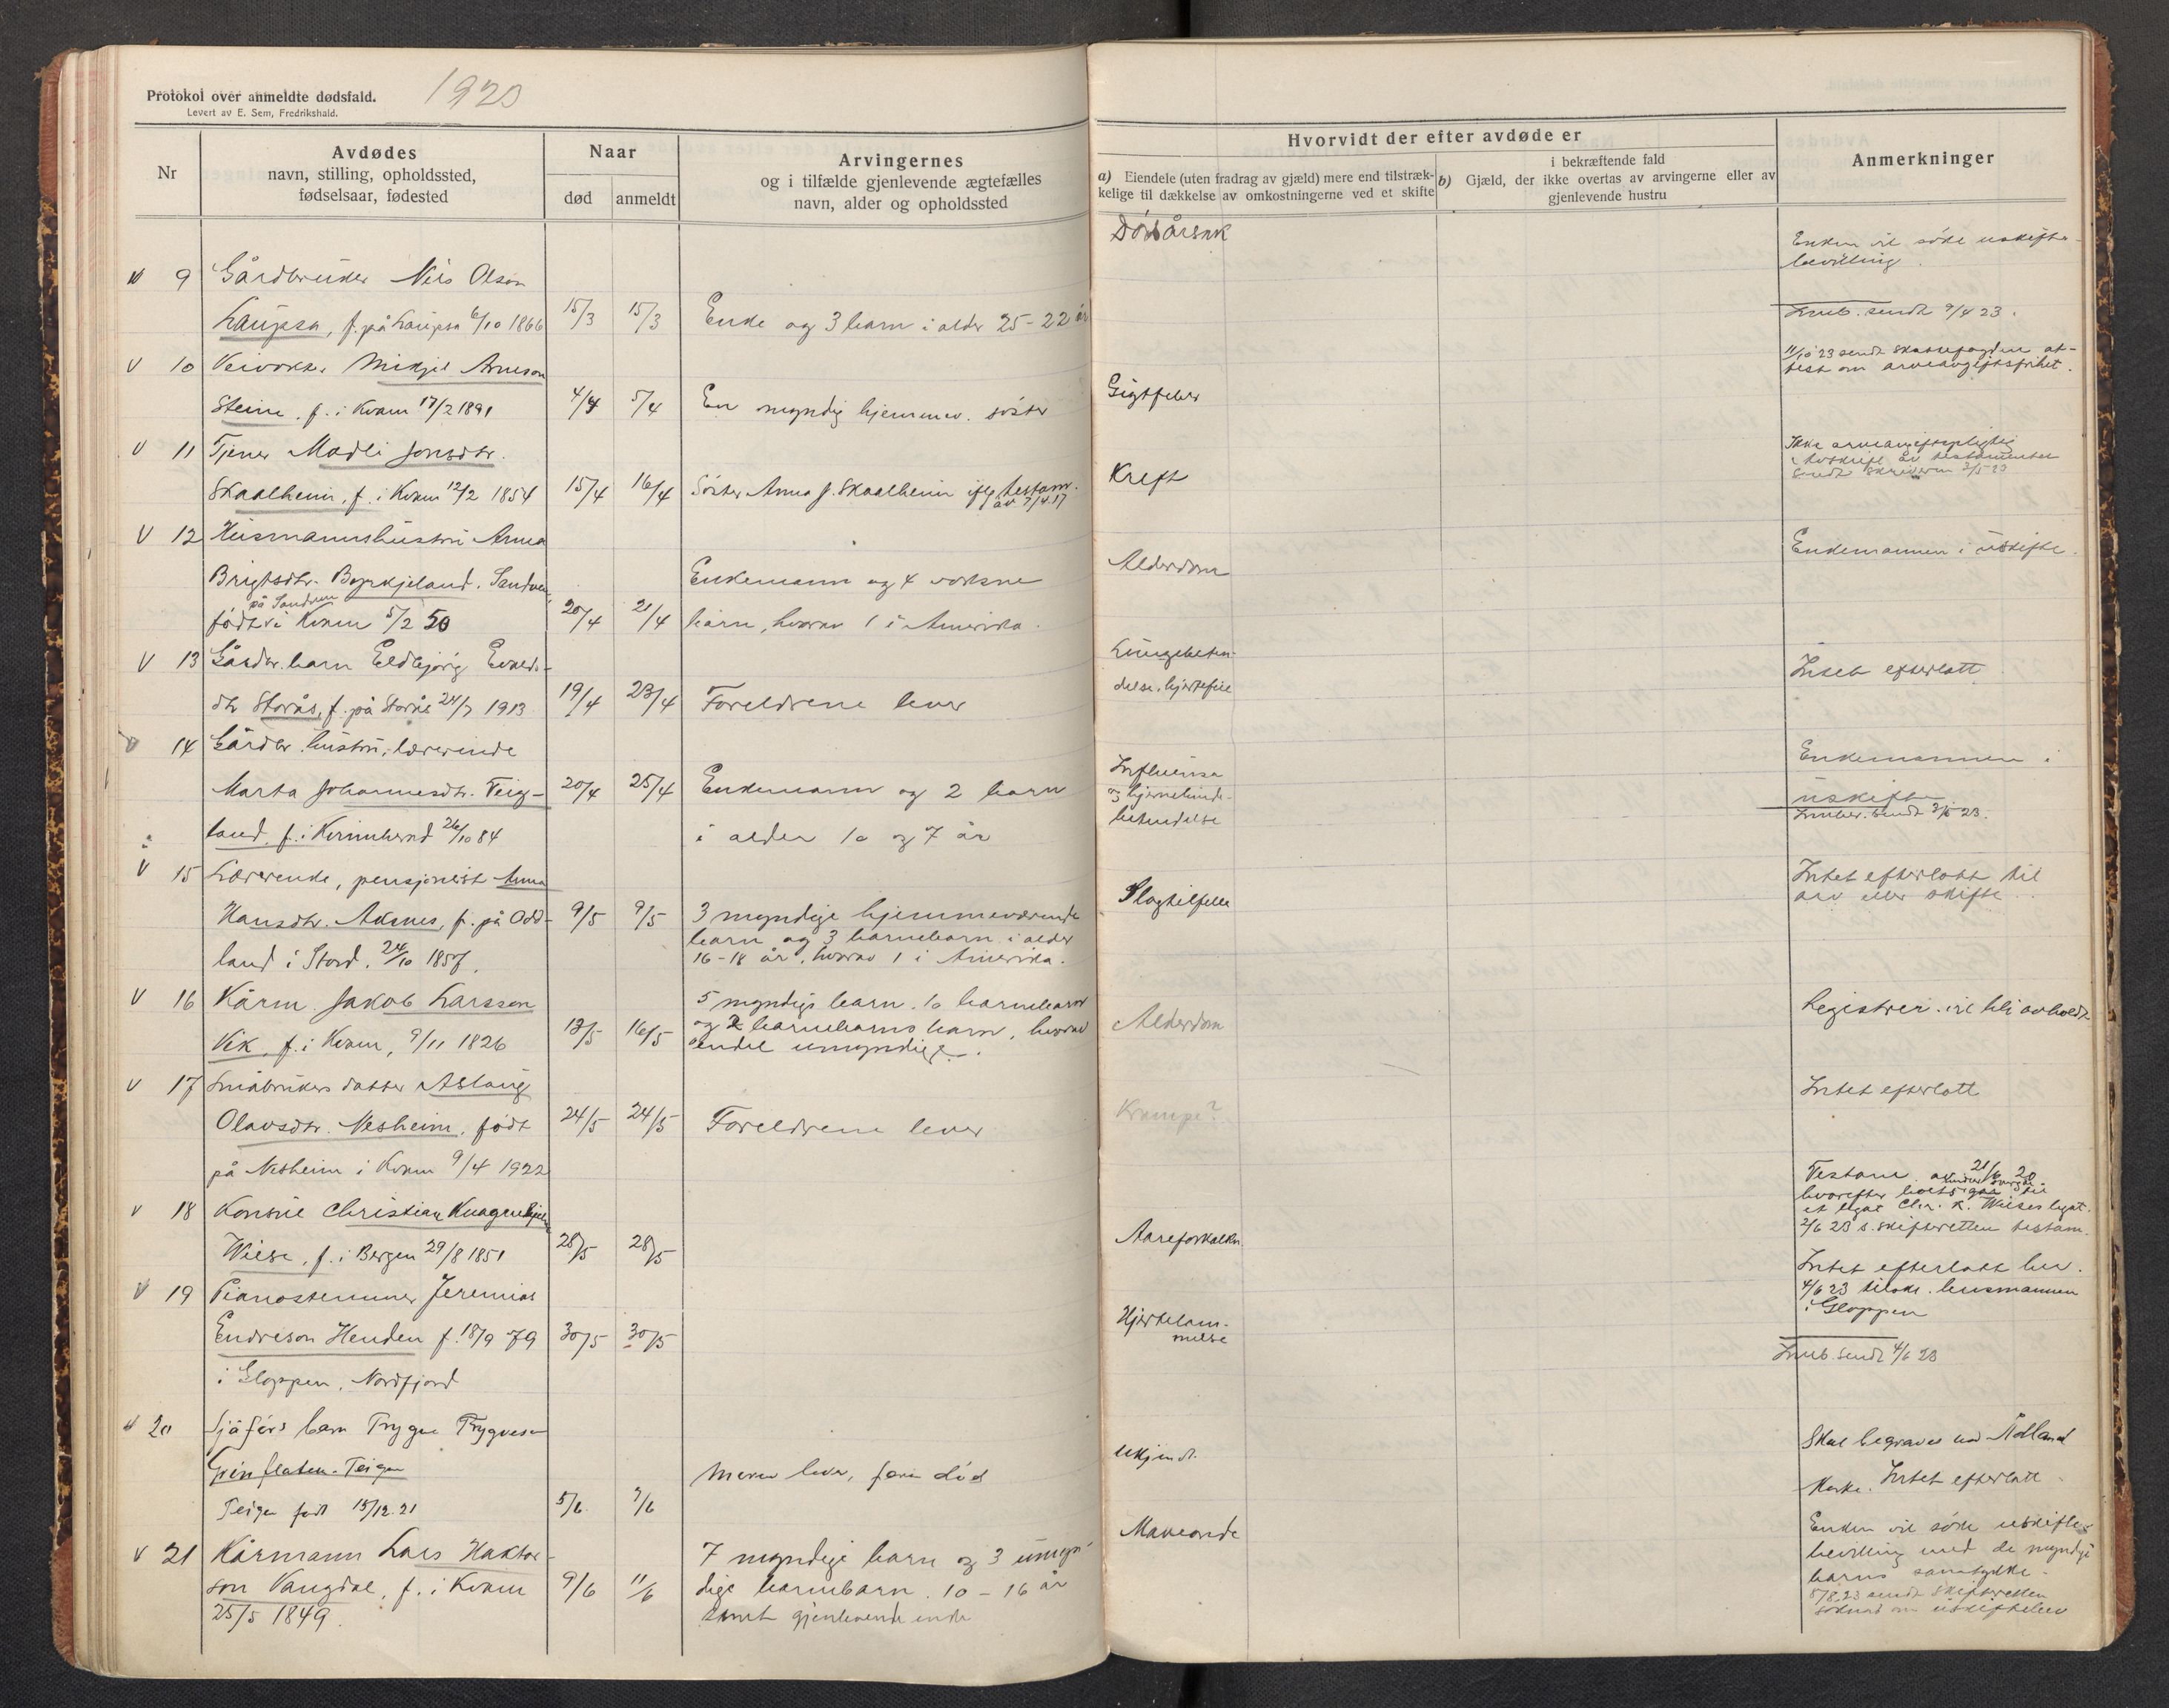 Protokol over anmeldte dødsfald.
1923
Levert av E. Sem, Fredrikshald.
Nr
Avdødes
navn, stilling, opholdssted,
fødselsaar, fødested
Naar
død
anmeldt
Arvingernes
og i tilfælde gjenlevende ægtefælles
navn, alder og opholdssted
Hvorvidt der efter avdøde er
a) Eiendele (uten fradrag av gjæld) mere end tilstræk-
kelige til dækkelse av omkostningerne ved et skifte
i bekræftende fald
b) Gjæld, der ikke overtas av arvingerne eller av
gjenlevende hustru
Anmerkninger
Dødsårsak
V 9 Gårdbruker Nils Olson
Laupsa, f. på Laupsa 6/10 1866 15/3 15/3 Enke og 3 barn i alder 25-22 år
Enken vil söke uskifte-
bevilling.
Innb. sendt 9/4 23.
V 10 Veivokter Mikjel Arneson
Steine, f. i Kvam 17/2 1891 4/4 5/4 En myndig hjemmev. söster
Gigtfeber
11/10 23 sendt skattefogden at-
test om arveavgiftsfrihet.
V 11 Tjener Madli Jonsdtr.
Skaalheim, f. i Kvam 12/2 1854 15/4 16/4 Söster Anna J. Skaalheim iflg. testam.
av 7/4 17
Kreft
Ikke arveavgiftspligtig
Avskrift av testamentet
sendt skriveren 3/5 23
V 12 Husmannshustru Anna
Brigtsdtr. Byrkjeland, Sandven,
på Sandven
født i Kvam 5/2 50 20/4 21/4
Enkemann og 4 voksne
barn, hvorav 1 i Amerika.
Alderdom
Enkemannen i uskifte.
V 13 Gårdbr. barn Eldbjörg
dtr Storås, f. på Storås 24/7 1913 19/4 23/4 Foreldrene lever
Lungebeten-
delse, hjertefeil
Intet efterlatt
V 14 Gårdbr. hustru, lærerinde
Marta Johannesdtr. Teig-
land, f. i Kvinnherad 26/10 84 20/4 25/4
Enkemann og 2 barn
i alder 10 og 7 år
Influensa
og hjernehinde-
betendelse
Enkemannen i
uskifte
Innber. sendt 3/5 23.
V 15 Lærerinde, pensjonist Anna
Hansdtr. Aksnes, f. på Odd-
land i Stord, 24/10 1857. 9/5 9/5
3 myndige hjemmeværende
barn og 3 barnebarn i alder
16-18 år, hvorav 1 i Amerika.
Slagtilfelle
Intet efterlatt til
arv eller skifte.
V 16 Kårm. Jakob Larsson
Vik, f. i Kvam, 9/11 1826 13/5 16/5
5 myndige barn, 10 barnebarn
og 2 barnebarns barn, hvorav
endel umyndige.
Alderdom
Registrer. vil bli avholdt
V 17 Småbrukers datter Aslaug
Olavsdtr. Nesheim, født
på Nesheim i Kvam 9/4 1922 24/5 24/5 Foreldrene lever
Krampe?
Intet efterlatt
V 18 Konsul Christian
Wiese, f. i Bergen 29/8 1851 28/5 28/5
Aareforkalkn.
Testam. 21/6 20
hvorefter boet går til
et legat Chr. K. Wieses legat.
2/6 23 s. skifteretten testam.
V 19 Pianostemmer Jeremias
Endreson Henden f. 18/9 79
i Gloppen, Nordfjord 30/5 30/5
Hjertelam-
melse
Intet efterlatt her.
4/6 23 tilskr. lensmannen
i Gloppen
Innb. sendt 4/6 23
V 20 Sjåförs barn Trygve Trygveson
Teigen
Teigen født 15/12.21 5/6 7/6
Moren lever, faren død
Ukjendt.
Skal begraves ved Ådland
Kirke. Intet efterlatt.
V 21 Kårmann Lars Haktor-
son Vangdal, f. i Kvam
25/5 1849. 9/6 11/6
7 myndige barn og 3 umyn-
dige barnebarn 10-16 år
samt gjenlevende enke
Maveonde
Enken vil söke uskifte-
bevilling med de myndige
barns samtykke.
8/8.23 sendt skifteretten
söknad om uskiftebev